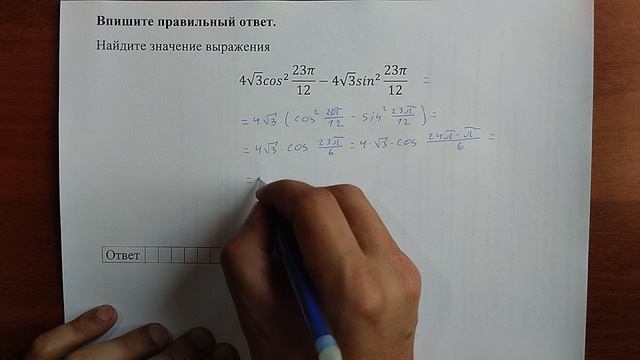 Впишите правильный ответ.
Найдите значение выражения
4√3cos² 23π/12 − 4√3sin² 23π/12 =
= 4√3 · (cos² 23π/12 − sin² 23π/12) =
= 4√3 · cos 23π/6 = 4 · √3 · cos 24π−π/6 =
=
Ответ